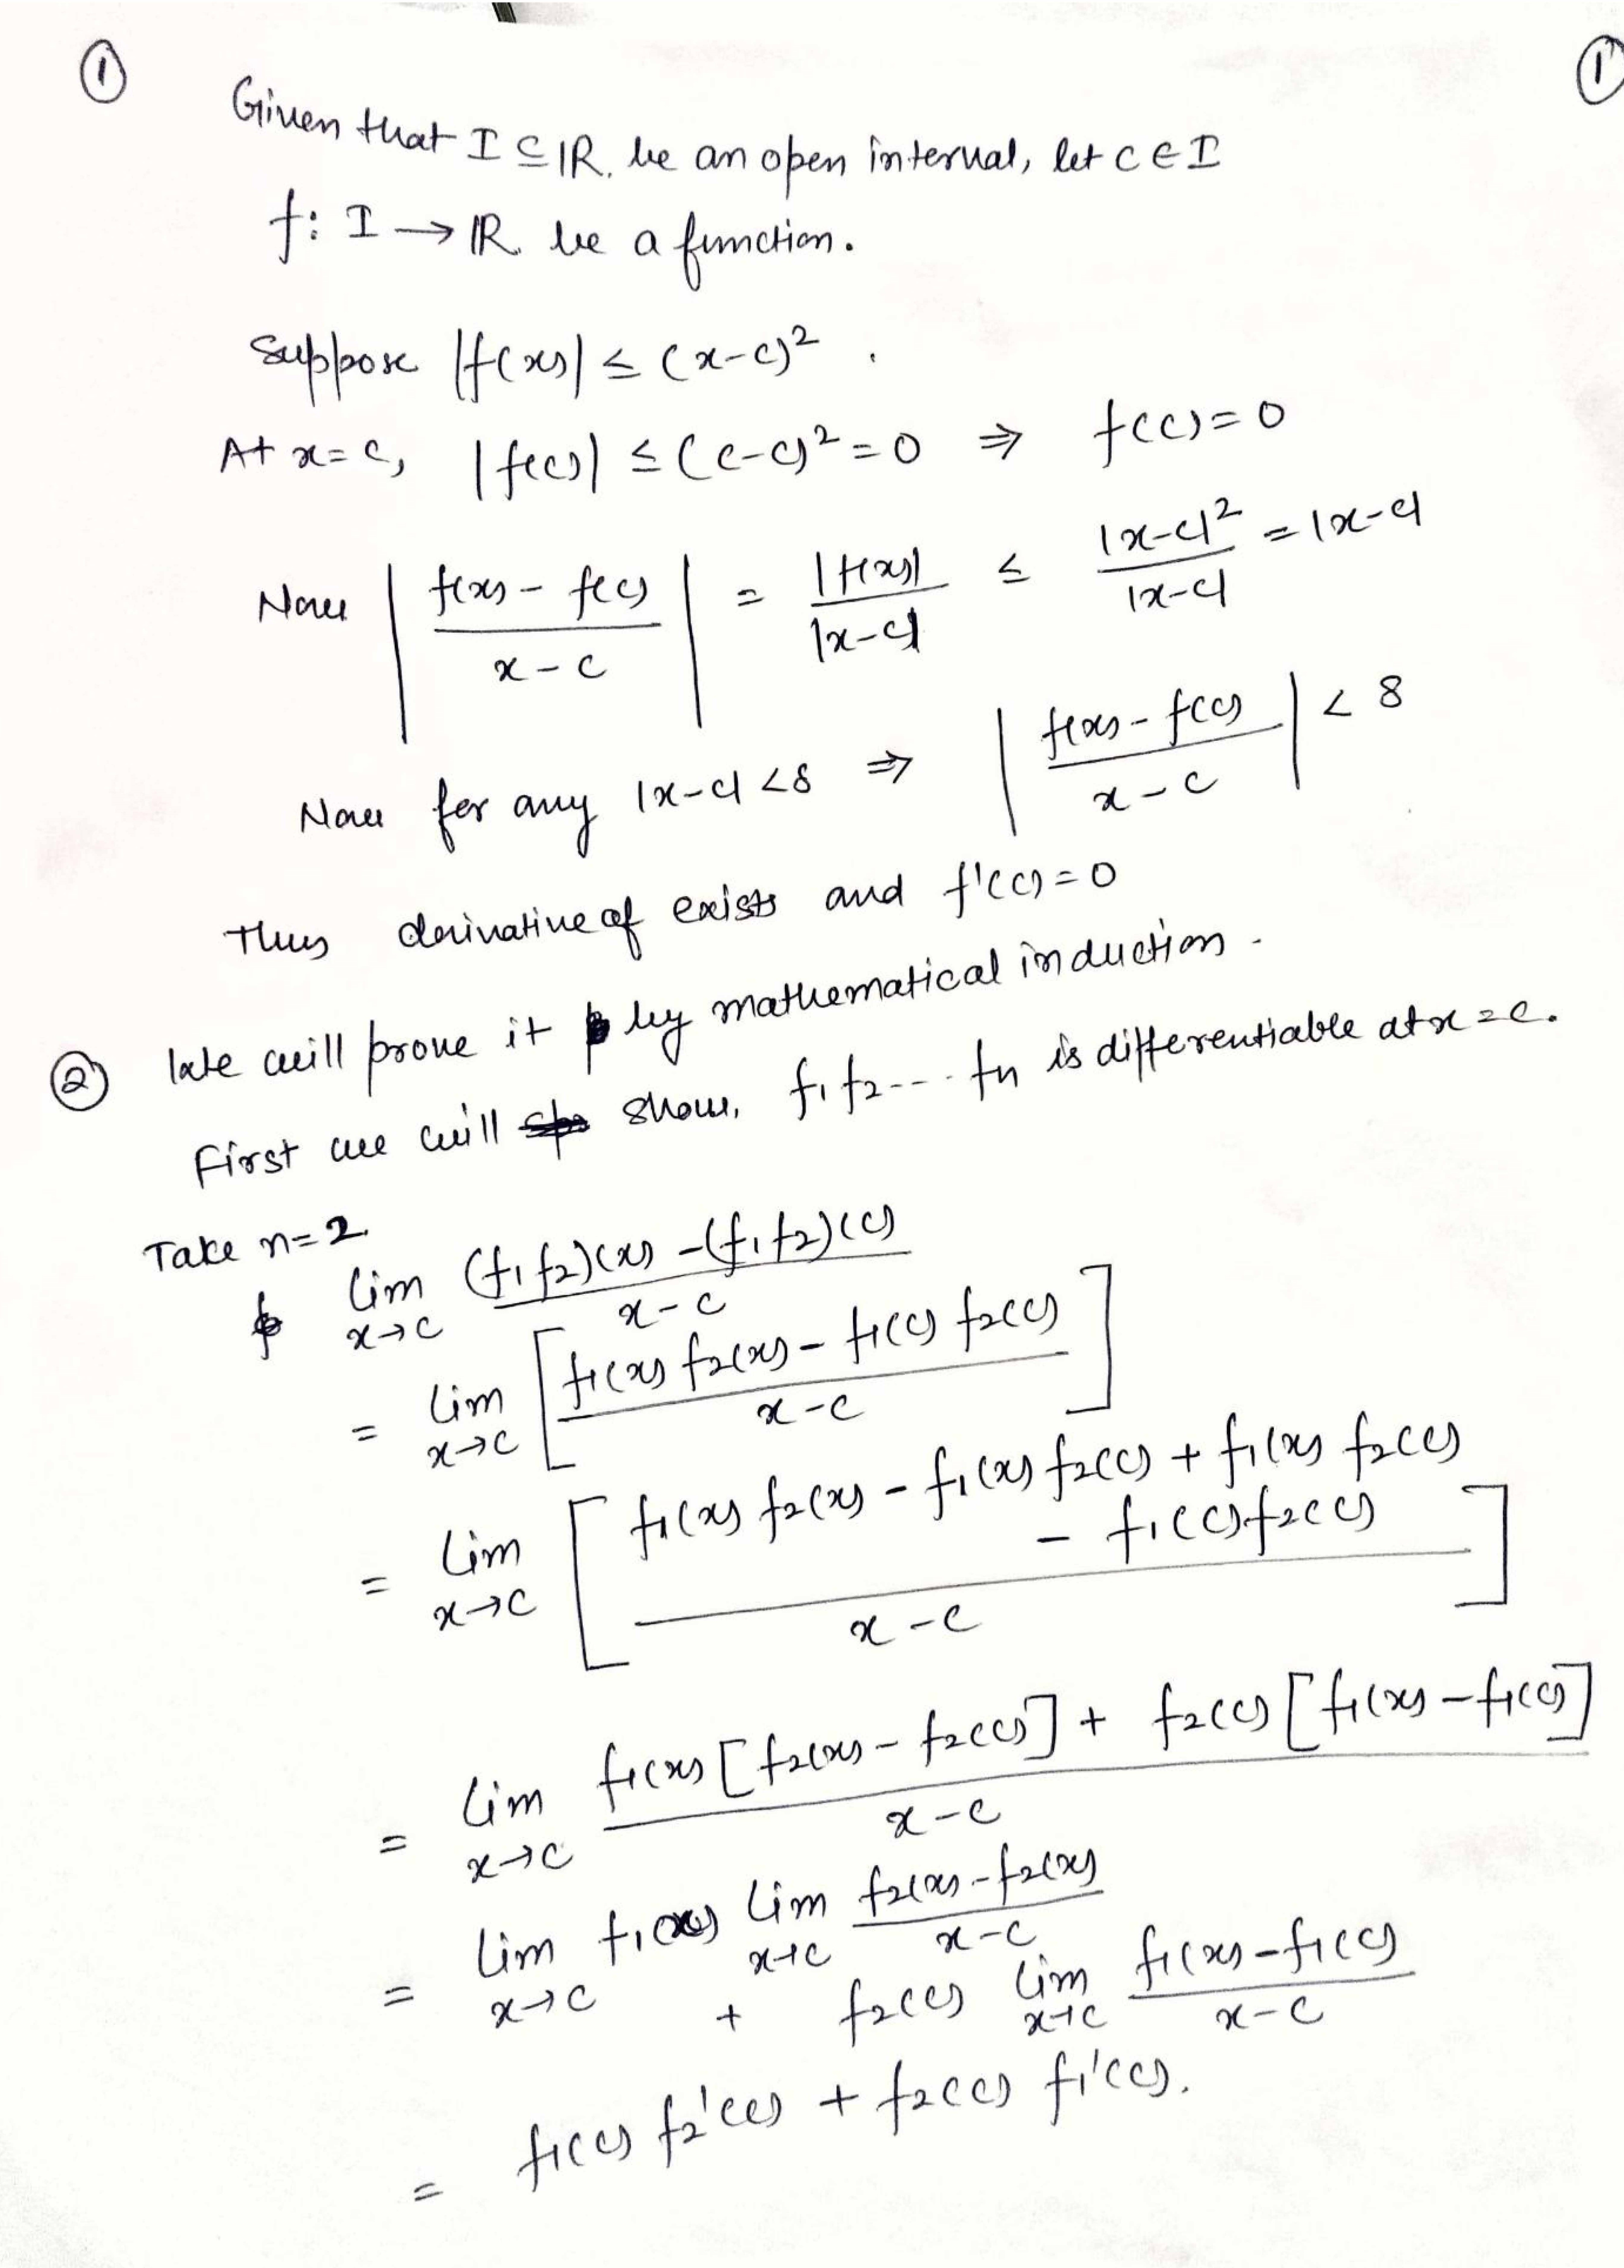 ① ①
Given that I ⊆ ℝ, be an open interval, let c ∈ I
f: I → ℝ be a function.
Suppose |f(x)| ≤ (x-c)² .
At x = c, |f(c)| ≤ (c-c)² = 0 ⇒ f(c) = 0
Now | (f(x) - f(c)) / (x - c) | = |f(x)| / |x-c| ≤ |x-c|² / |x-c| = |x-c|
Now for any |x-c| < δ ⇒ | (f(x) - f(c)) / (x - c) | < δ
Thus derivative of exists and f'(c) = 0
② We will prove it by mathematical induction.
First we will show, f₁f₂---.fn is differentiable at x = c.
Take n = 2.
lim x→c ((f₁f₂)(x) - (f₁f₂)(c)) / (x - c)
= lim x→c [ (f₁(x) f₂(x) - f₁(c) f₂(c)) / (x - c) ]
= lim x→c [ (f₁(x) f₂(x) - f₁(x) f₂(c) + f₁(x) f₂(c)
- f₁(c) f₂(c)) / (x - c) ]
= lim x→c (f₁(x) [f₂(x) - f₂(c)] + f₂(c) [f₁(x) - f₁(c)]) / (x - c)
= lim x→c f₁(x) lim x→c (f₂(x) - f₂(x)) / (x - c)
+ f₂(c) lim x→c (f₁(x) - f₁(c)) / (x - c)
= f₁(c) f₂'(c) + f₂(c) f₁'(c).